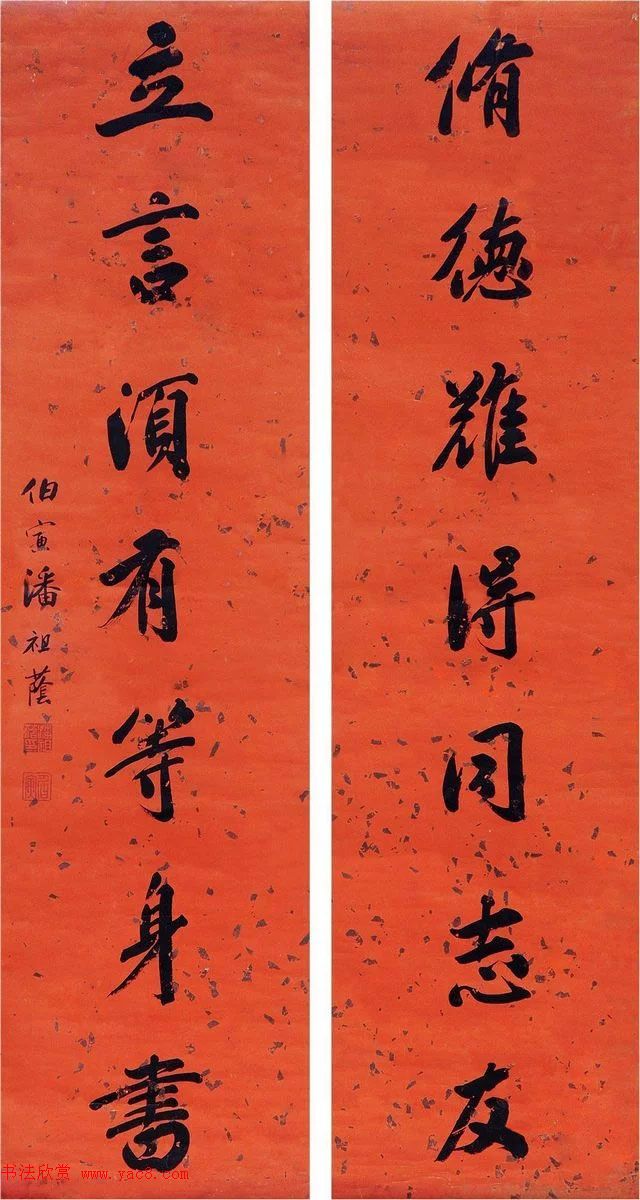 脩德難得同志友
立言湏有等身書
伯寅潘祖蔭
书法欣赏 www.yac8.com